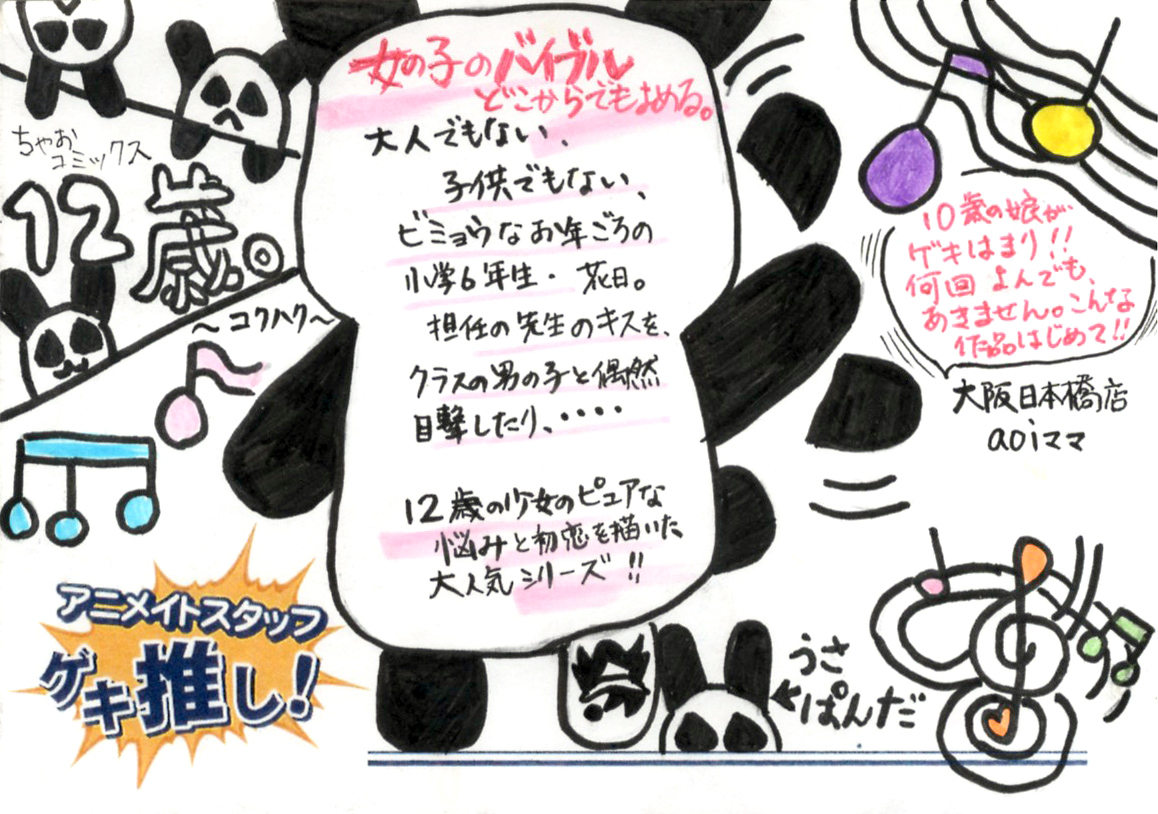 女の子のバイブル
どこからでもよめる。
大人でもない、
子供でもない、
ビミョウなお年ごろの
小学6年生・花日。
担任の先生のキスを、
クラスの男の子と偶然
目撃したり、・・・・
12歳の少女のピュアな
悩みと初恋を描いた
大人気シリーズ!!
ちゃお
コミックス
12歳。
〜コクハク〜
10歳の娘が
ゲキはまり!!
何回よんでも、
あきません。こんな
作品はじめて!!
大阪日本橋店
aoiママ
アニメイトスタッフ
ゲキ推し!
うさ
ぱんだ